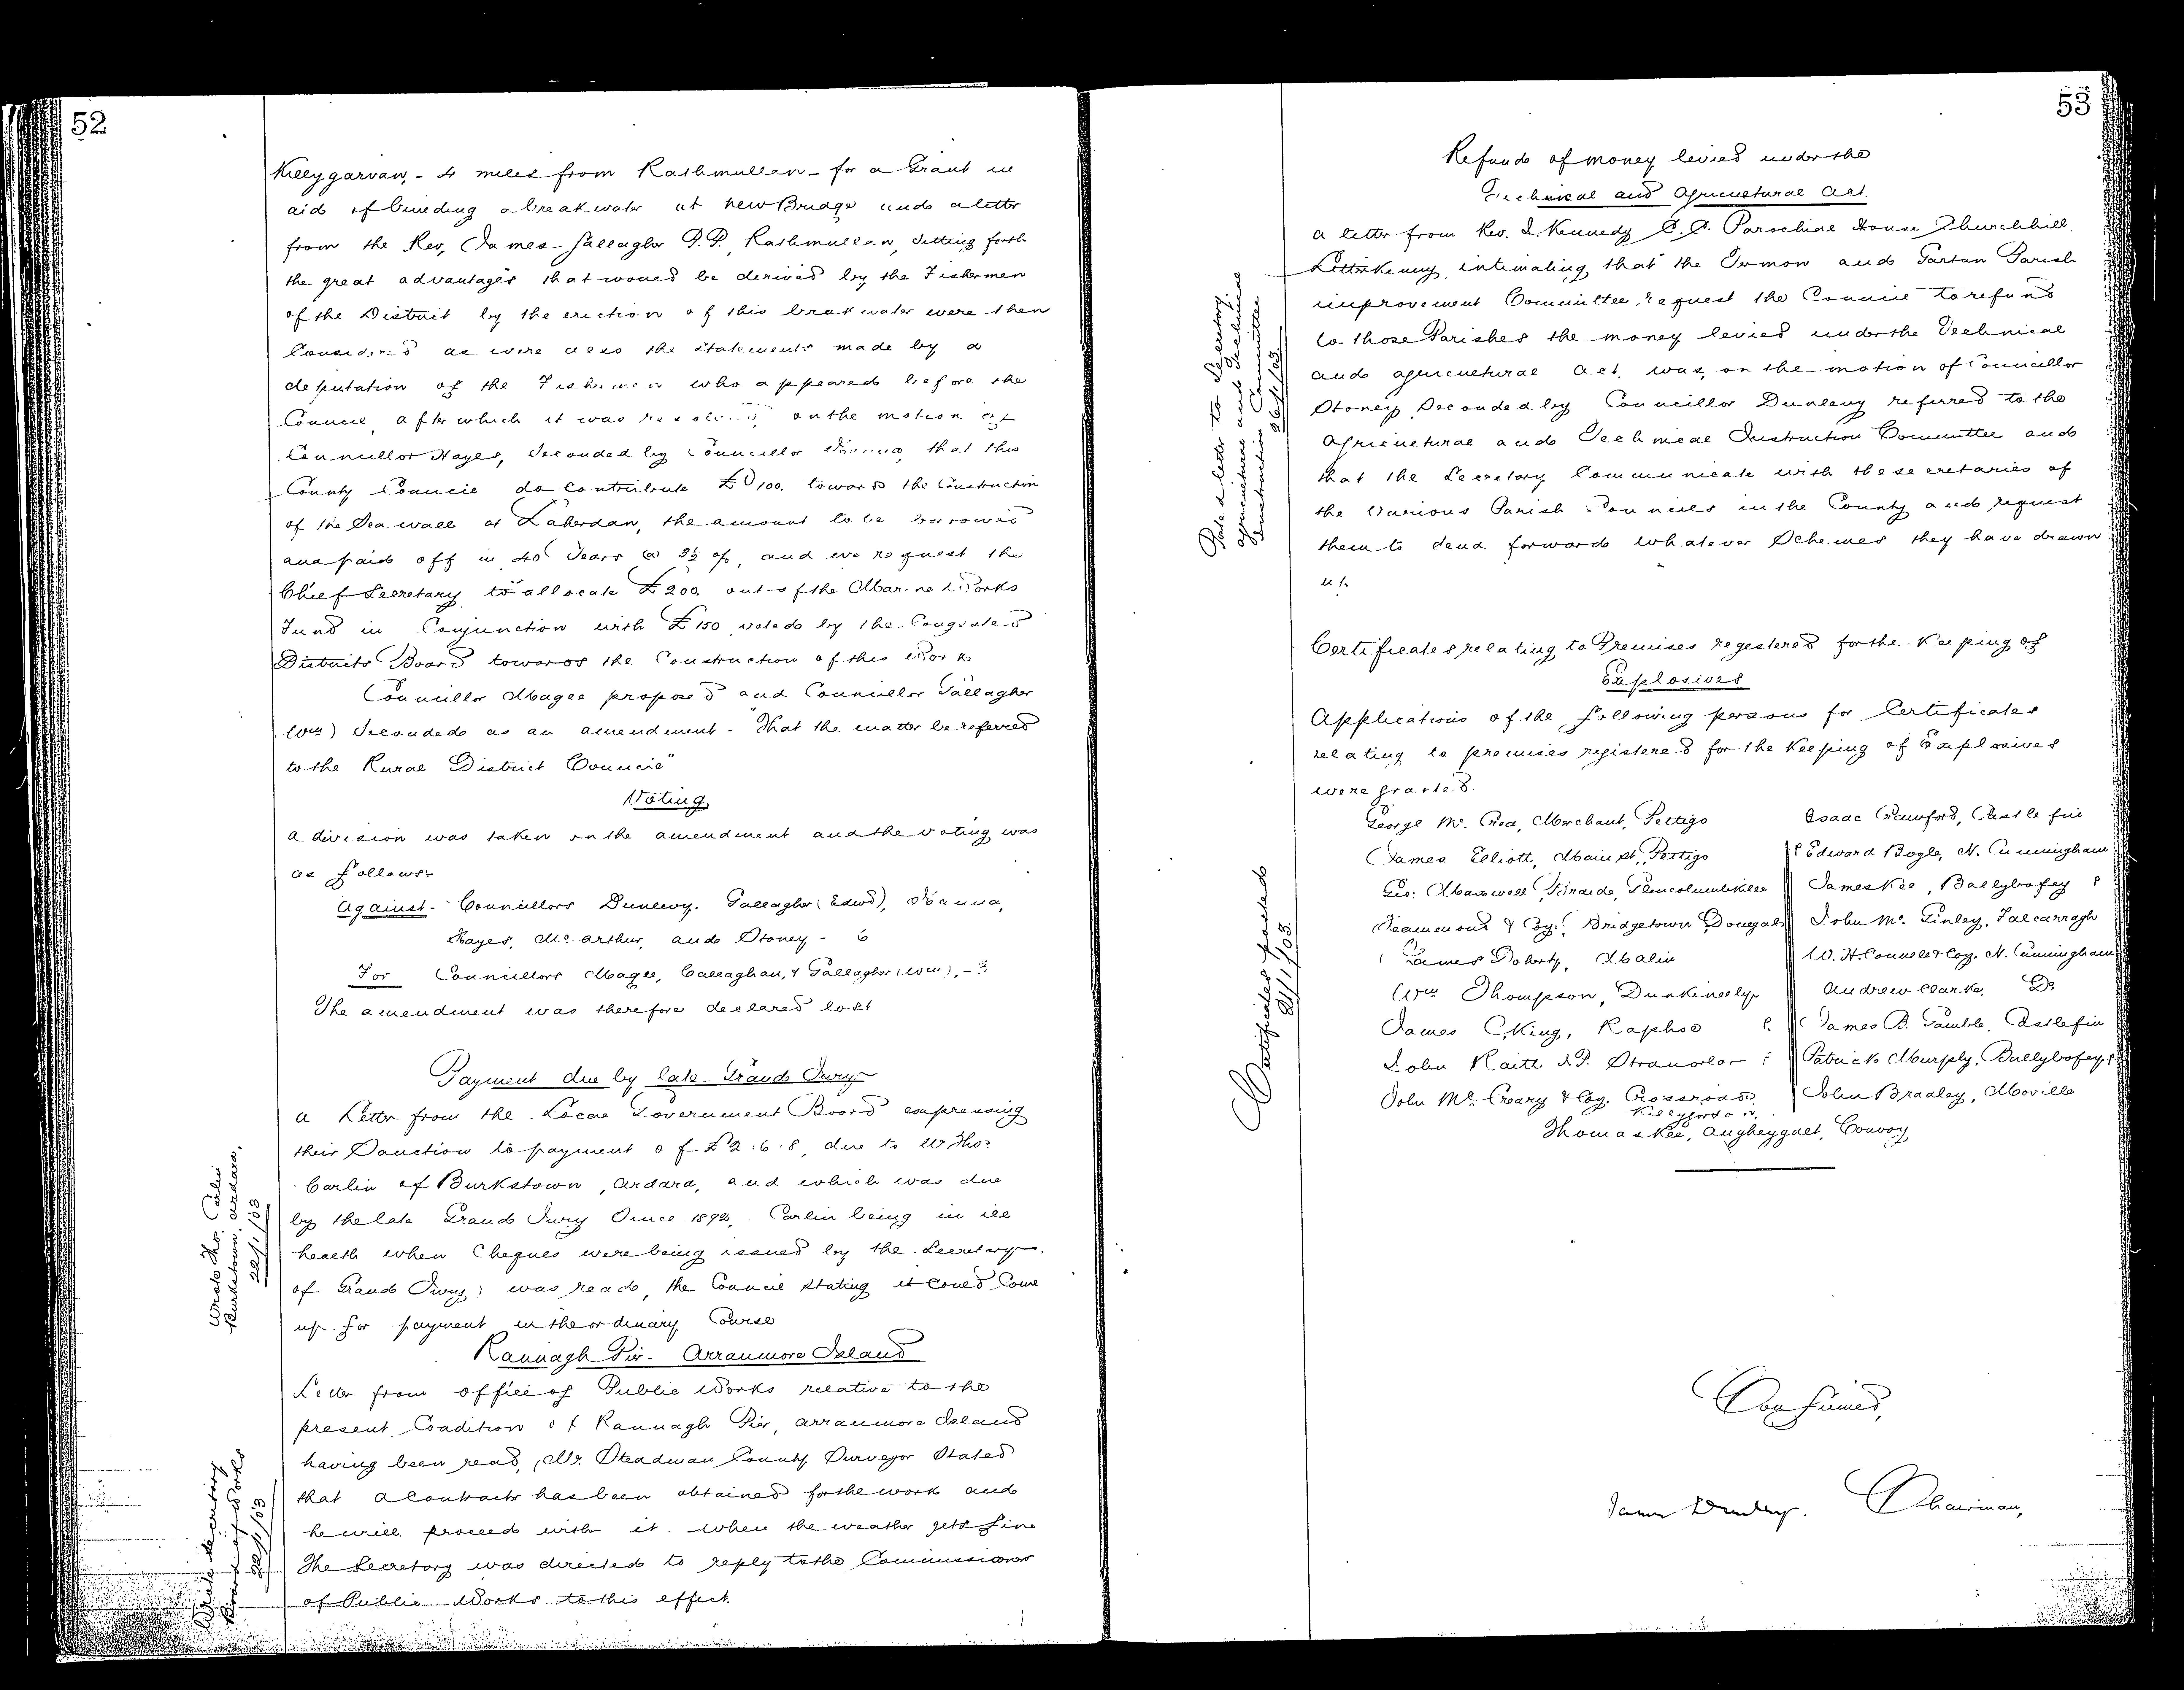 52
Killygarvan, - 4 miles from Rathmullen - for a Grant in
aid of building a breakwater at New Bridge and a letter
from the Rev. James Gallagher P.P., Rathmullen, setting forth
the great advantages that would be derived by the Fishermen
of the District by the erection of this breakwater were then
Considered as were also the statements made by a
deputation of the Fishermen who appeared before the
Council, after which it was resolved, on the motion of
Councillor Hayes, Seconded by Councillor Hanna, that this
County Council do Contribute £100. towards the Construction
of the Sea wall at Laherdan, the amount to be borrowed
and paid off in 40 Years @ 3½ %, and we request the
Chief Secretary to allocate £200. out of the Marine Works
Fund in Conjunction with £150 voted by the Congested
Districts Board towards the Construction of this Work
Councillor Magee proposed and Councillor Gallagher
(Wm) Seconded as an amendment - "That the matter be referred
to the Rural District Council"
Voting
A division was taken on the amendment and the voting was
as follows:-
Against - Councillors Dunlevy, Gallagher (Edwd), Hanna,
Hayes, McArthur, and Stoney - 6
For Councillors Magee, Callaghan, & Gallagher (Wm), - 3
The amendment was therefore declared lost
Payment due by late Grand Jury
A Letter from the Local Government Board expressing
their Sanction to payment of £2.6.8, due to Mr Thos.
Carlin of Burkstown, Ardara, and which was due
by the late Grand Jury Since 1892, Carlin being in ill
health when Cheques were being issued by the Secretary
of Grand Jury) was read, the Council stating it could Come
up for payment in the ordinary Course
Wrote Thos. Carlin
Burkstown, Ardara,
22/1/03
Rannagh Pier - Arranmore Island
Letter from Office of Public Works relative to the
present Condition of Rannagh Pier, Arranmore Island
having been read, Mr. Steadman County Surveyor Stated
that a Contractor has been obtained for the work and
he will proceed with it when the weather gets fine
The Secretary was directed to reply to the Commissioners
of Public Works to this effect.
Wrote Secretary
Board of Works
22/1/03
53
Refund of money levied under the
Technical and Agricultural Act.
A letter from Rev. J. Kennedy C.C. Parochial House Churchhill,
Letterkenny, intimating that the Termon and Gartan Parish
improvement Committee, request the Council to refund
to those Parishes the money levied under the Technical
and Agricultural Act, was, on the motion of Councillor
Stoney, Seconded by Councillor Dunlevy referred to the
Agricultural and Technical Instruction Committee and
that the Secretary Communicate with the secretaries of
the Various Parish Councils in the County and request
them to send forward whatever Schemes they have drawn
up.
letter to Secretary
Agricultural and Technical
Instruction Committee
26/1/03
Certificates relating to Premises registered for the Keeping of
Explosives
Applications of the following persons for Certificates
relating to premises registered for the Keeping of Explosives
were granted.
George McCrea, Merchant, Pettigo
James Elliott, Main St., Pettigo
Geo. Maxwell, Kinards, Glencolumbkille
Hammond & Coy., Bridgetown Donegal
James Doherty, Malin
Wm Thompson, Dunkineely
James King, Raphoe
John Raitt J.P. Stranorlar
John McCreary & Coy. Crossroads
Killygordon
Isaac Crawford, Castlefin
Edward Bogle, N. Cunningham
James Kee, Ballybofey
John McGinley, Falcarragh
W. H. Connell & Coy. N. Cunningham
Andrew Clarke, Do
James B. Gamble, Castlefin
Patrick Murphy, Ballybofey
John Bradley, Moville
Thomas Kee, Augheygalt, Convoy
Certificates posted
21/1/03.
Confirmed,
James Dunlevy. Chairman,